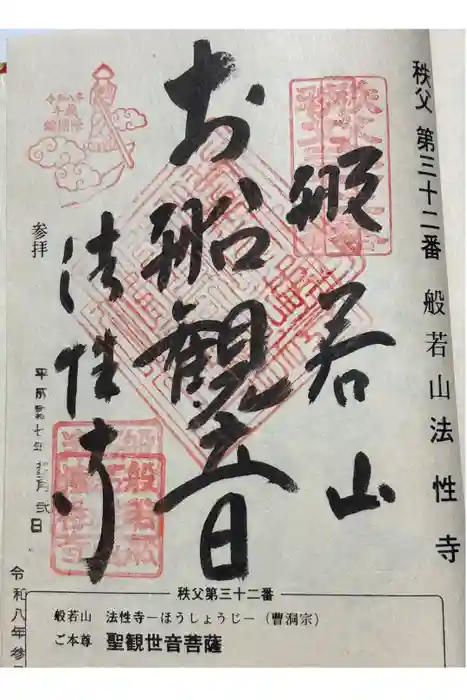 秩父 第三十二番 般若山法性寺
般若山
お船観音
法性寺
参拝
令和八年
午歳
総開帳
令和八年参
秩父第三十二番
般若山 法性寺ーほうしょうじー(曹洞宗)
ご本尊 聖観世音菩薩